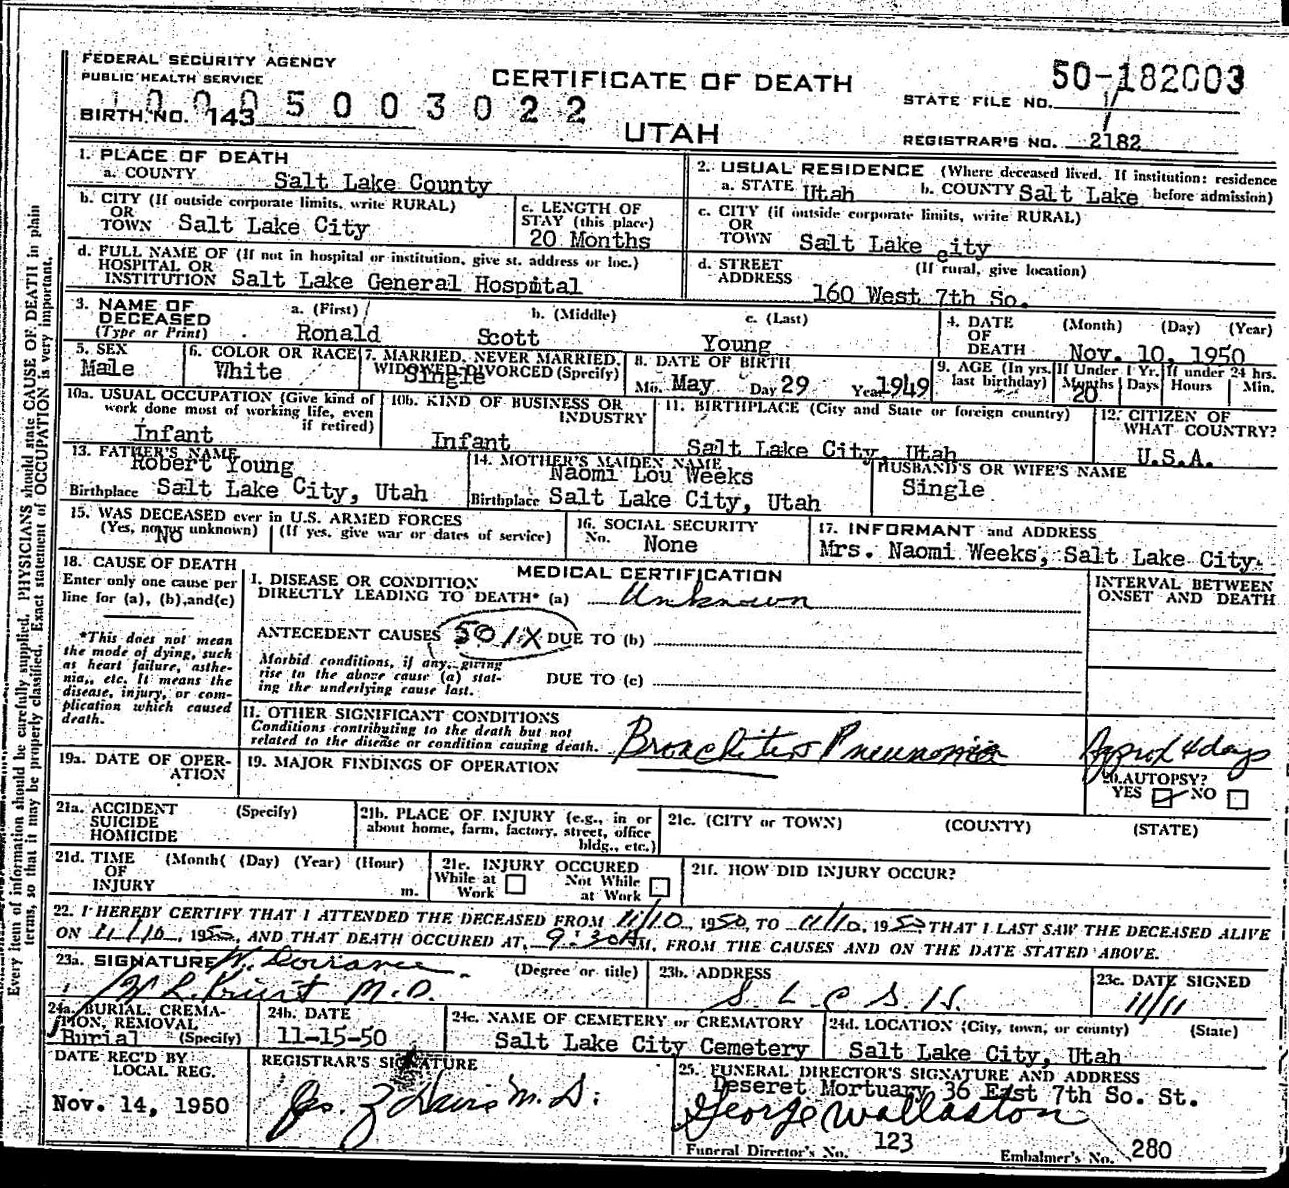 FEDERAL SECURITY AGENCY
PUBLIC HEALTH SERVICE
CERTIFICATE OF DEATH
50-182003
STATE FILE NO.
1 0 0 0 5 0 0 3 0 2 2
BIRTH NO. 143
UTAH
REGISTRAR'S NO. 2182
Every item of information should be carefully supplied. PHYSICIANS should state CAUSE OF DEATH in plain
terms, so that it may be properly classified. Exact statement of OCCUPATION is very important.
1. PLACE OF DEATH
a. COUNTY Salt Lake County
2. USUAL RESIDENCE (Where deceased lived. If institution: residence
a. STATE Utah b. COUNTY Salt Lake before admission)
b. CITY (If outside corporate limits, write RURAL)
OR
TOWN Salt Lake City
c. LENGTH OF
STAY (this place)
20 Months
c. CITY (if outside corporate limits, write RURAL)
OR
TOWN Salt Lake City
d. FULL NAME OF (If not in hospital or institution, give st. address or loc.)
HOSPITAL OR
INSTITUTION Salt Lake General Hospital
d. STREET (If rural, give location)
ADDRESS
160 West 7th So.
3. NAME OF
DECEASED
(Type or Print)
a. (First) b. (Middle) c. (Last)
Ronald Scott Young
4. DATE (Month) (Day) (Year)
OF
DEATH Nov. 10, 1950
5. SEX
Male
6. COLOR OR RACE
White
7. MARRIED, NEVER MARRIED,
WIDOWED, DIVORCED (Specify)
Single
8. DATE OF BIRTH
Mo. May Day 29 Year 1949
9. AGE (In yrs. last birthday)
If Under 1 Yr. Months Days
20
If under 24 hrs. Hours Min.
10a. USUAL OCCUPATION (Give kind of
work done most of working life, even
if retired)
Infant
10b. KIND OF BUSINESS OR
INDUSTRY
Infant
11. BIRTHPLACE (City and State or foreign country)
Salt Lake City, Utah
12. CITIZEN OF
WHAT COUNTRY?
U.S.A.
13. FATHER'S NAME
Robert Young
Birthplace Salt Lake City, Utah
14. MOTHER'S MAIDEN NAME
Naomi Lou Weeks
Birthplace Salt Lake City, Utah
HUSBAND'S OR WIFE'S NAME
Single
15. WAS DECEASED ever in U.S. ARMED FORCES
(Yes, no, or unknown) (If yes, give war or dates of service)
No
16. SOCIAL SECURITY
No. None
17. INFORMANT and ADDRESS
Mrs. Naomi Weeks, Salt Lake City.
18. CAUSE OF DEATH
Enter only one cause per
line for (a), (b), and (c)
*This does not mean
the mode of dying, such
as heart failure, asthe-
nia, etc. It means the
disease, injury, or com-
plication which caused
death.
MEDICAL CERTIFICATION
I. DISEASE OR CONDITION
DIRECTLY LEADING TO DEATH* (a) Unknown
ANTECEDENT CAUSES 501X DUE TO (b)
Morbid conditions, if any, giving
rise to the above cause (a) stat-
ing the underlying cause last.
DUE TO (c)
INTERVAL BETWEEN
ONSET AND DEATH
II. OTHER SIGNIFICANT CONDITIONS
Conditions contributing to the death but not
related to the disease or condition causing death.
Pneumonia
Approx 4 days
19a. DATE OF OPER-
ATION
19. MAJOR FINDINGS OF OPERATION
20. AUTOPSY?
YES NO
21a. ACCIDENT (Specify)
SUICIDE
HOMICIDE
21b. PLACE OF INJURY (e.g., in or
about home, farm, factory, street, office
bldg., etc.)
21c. (CITY or TOWN) (COUNTY) (STATE)
21d. TIME (Month( (Day) (Year) (Hour)
OF
INJURY m.
21e. INJURY OCCURED
While at Work Not While at Work
21f. HOW DID INJURY OCCUR?
22. I HEREBY CERTIFY THAT I ATTENDED THE DECEASED FROM 11/10, 1950, TO 11/10, 1950 THAT I LAST SAW THE DECEASED ALIVE
ON 11/10, 1950, AND THAT DEATH OCCURED AT 9:30A M. FROM THE CAUSES AND ON THE DATE STATED ABOVE.
23a. SIGNATURE (Degree or title)
M.D.
23b. ADDRESS
S L C S H.
23c. DATE SIGNED
11/11
24a. BURIAL, CREMA-
TION, REMOVAL
(Specify)
Burial
24b. DATE
11-15-50
24c. NAME OF CEMETERY or CREMATORY
Salt Lake City Cemetery
24d. LOCATION (City, town, or county) (State)
Salt Lake City, Utah
DATE REC'D BY
LOCAL REG.
Nov. 14, 1950
REGISTRAR'S SIGNATURE
M.D.
25. FUNERAL DIRECTOR'S SIGNATURE AND ADDRESS
Deseret Mortuary 36 East 7th So. St.
George Wallaston
Funeral Director's No. 123
Embalmer's No. 280